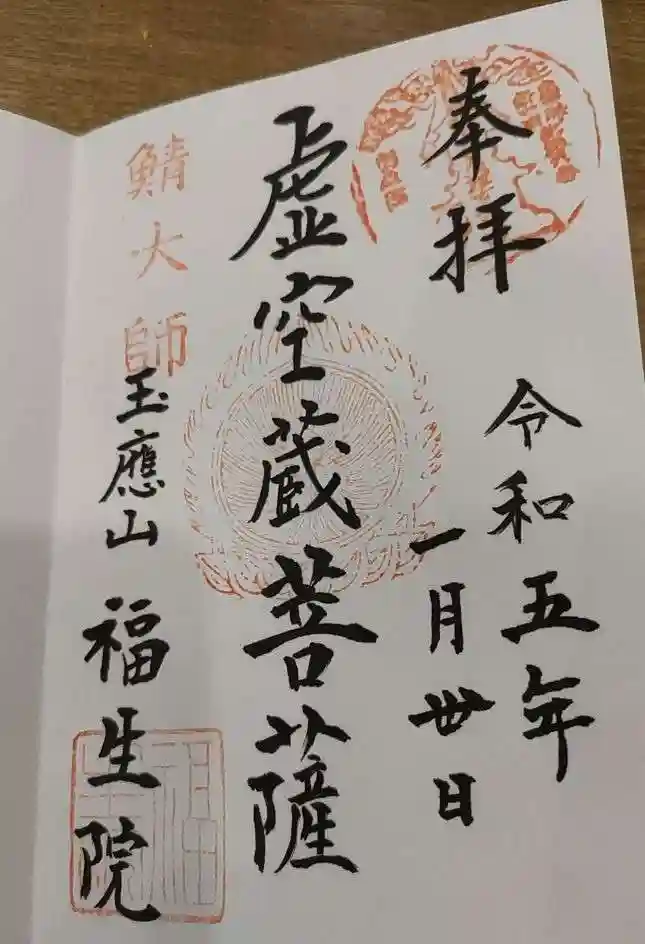 奉拝
令和五年
一月丗日
虚空蔵菩薩
鯖大師
玉應山 福生院